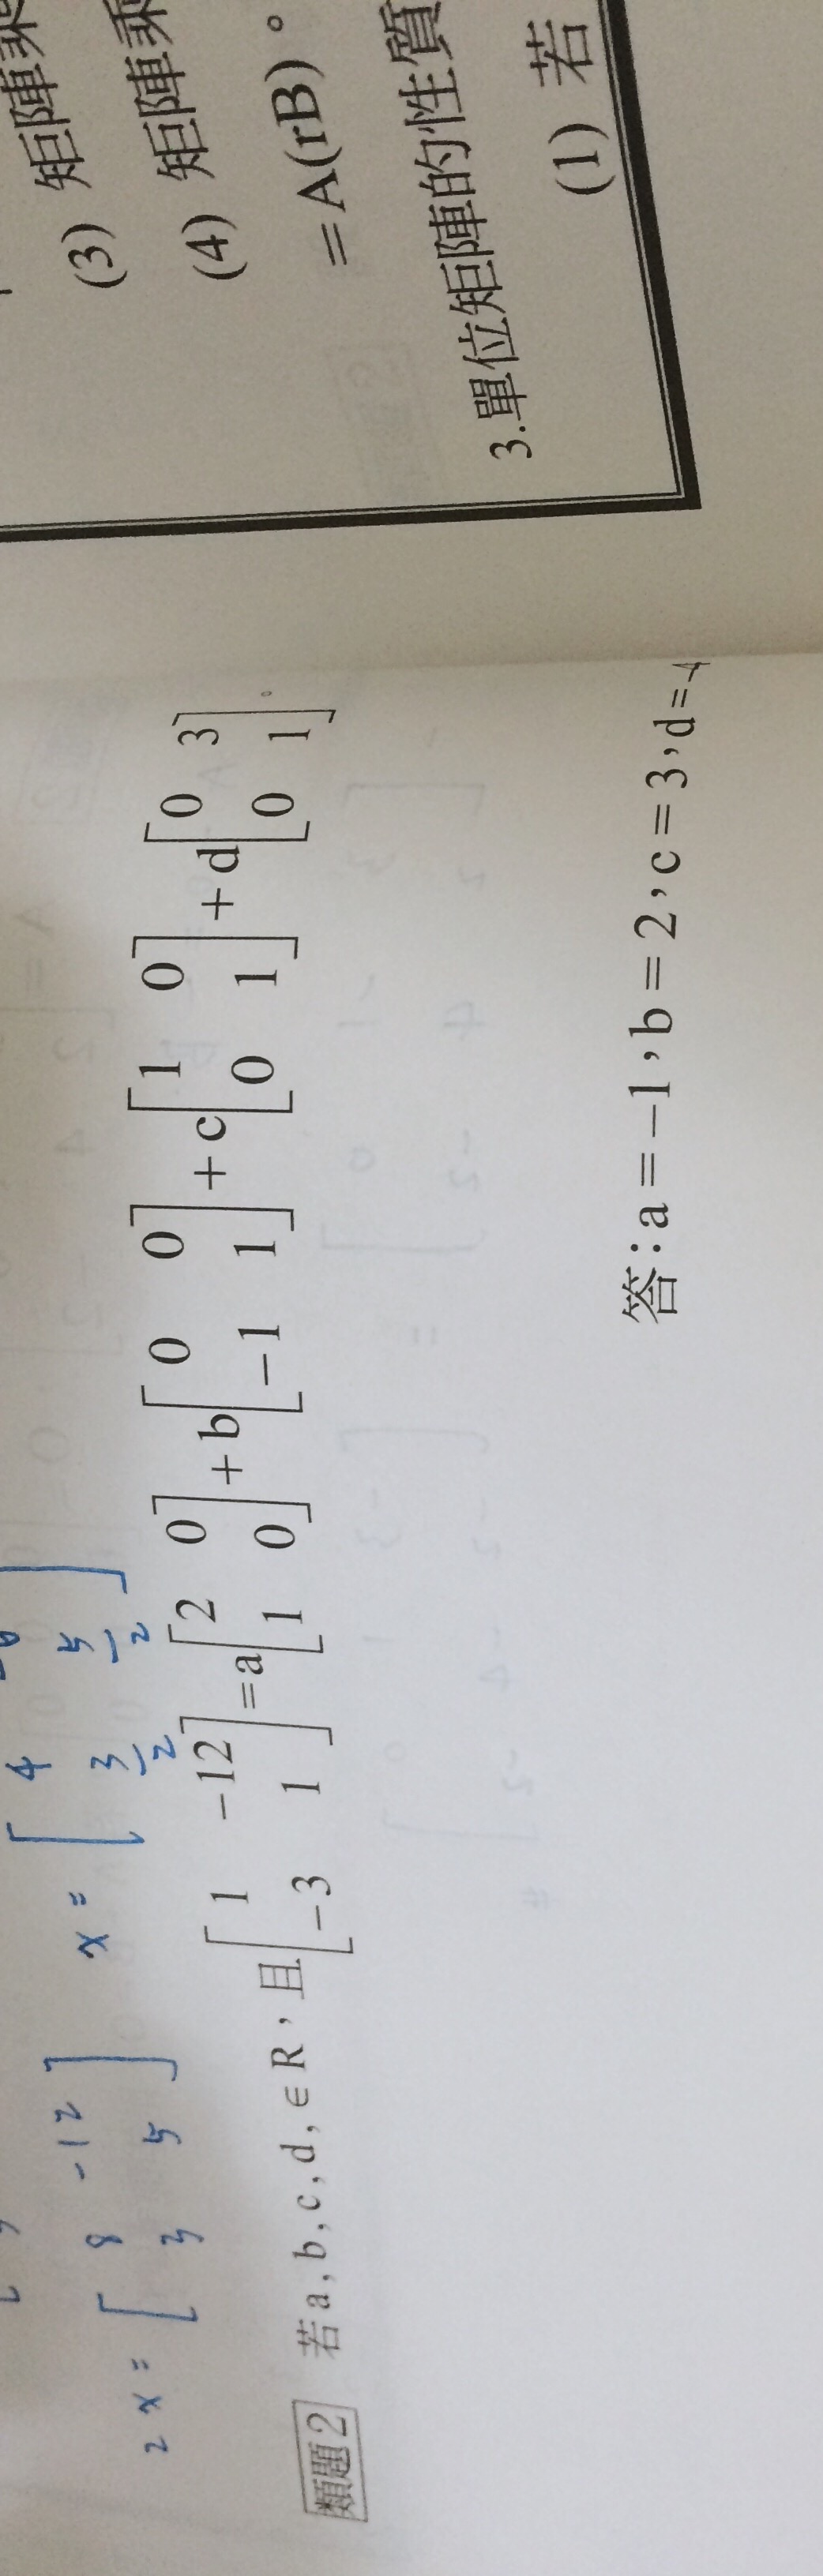 2x = [ 8 -12
3 5 ] x = [ 4
3/2 5/2 ]
類題2 若a,b,c,d,∈R,且[ 1 -12
-3 1 ]=a[ 2 0
1 0 ]+b[ 0 0
-1 1 ]+c[ 1 0
0 1 ]+d[ 0 3
0 1 ]。
答:a=-1,b=2,c=3,d=-4
(3) 矩陣乘
(4) 矩陣乘
=A(rB)。
3.單位矩陣的性質
(1) 若